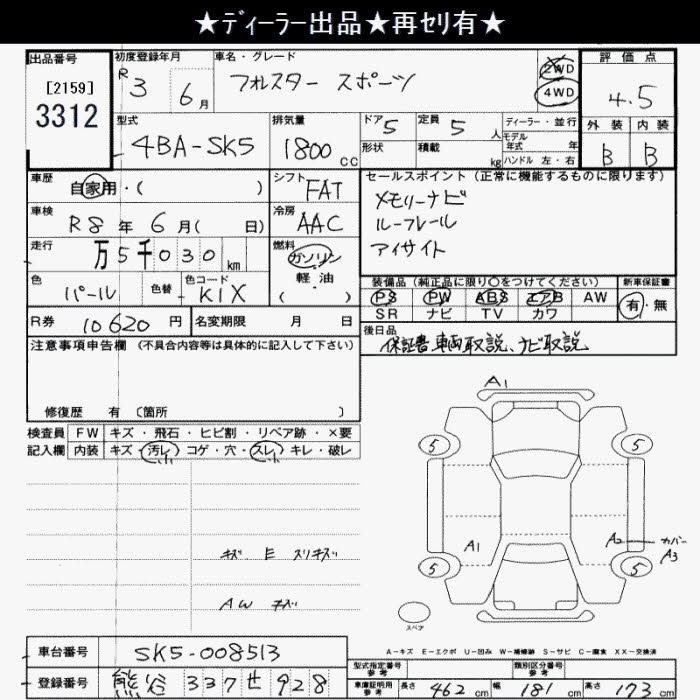 ★ディーラー出品★再セリ有★
出品番号 初度登録年月 車名・グレード 2WD 評価点
[2159] R3 6月 フォレスター スポーツ 4WD 4.5
3312
型式 排気量 ドア 5 定員 5人 ディーラー・並行 外装 内装
4BA-SK5 1800cc 形状 積載 kg モデル年式 年式 ハンドル 左・右 B B
車歴 自家用・( ) シフト FAT セールスポイント(正常に機能するものに限ります)
車検 R8年 6月( 日) 冷房 AAC メモリーナビ
ルーフレール
走行 万5千030km 燃料 ガソリン アイサイト
軽・油
( )
色 パール 色替 色コード K1X 装備品(純正品に限り〇をつけてください) 新車保証書
PS PW ABS エアB AW 有・無
SR ナビ TV カワ
R券 10620円 名変期限 月 日 後日品
保証書、車両取説、ナビ取説
注意事項申告欄(不具合内容等は具体的に記入して下さい)
修復歴 有 〔箇所 〕
検査員 FW キズ・飛石・ヒビ割・リペア跡・×要
記入欄 内装 キズ・汚レ・コゲ・穴・スレ・キレ・破レ
小 小
A1
5 5
A1 A2 カバー
A3
5 5
キズ E スリキズ
AW キズ
スペア
A-キズ E-エクボ U-凹み W-補修跡 S-サビ C-腐食 XX-交換済
車台番号 SK5-008513 型式指定番号 参考 類別区分番号 参考
登録番号 熊谷 337 せ 928 車庫証明用 参考 長さ 462cm 幅 181cm 高さ 173cm